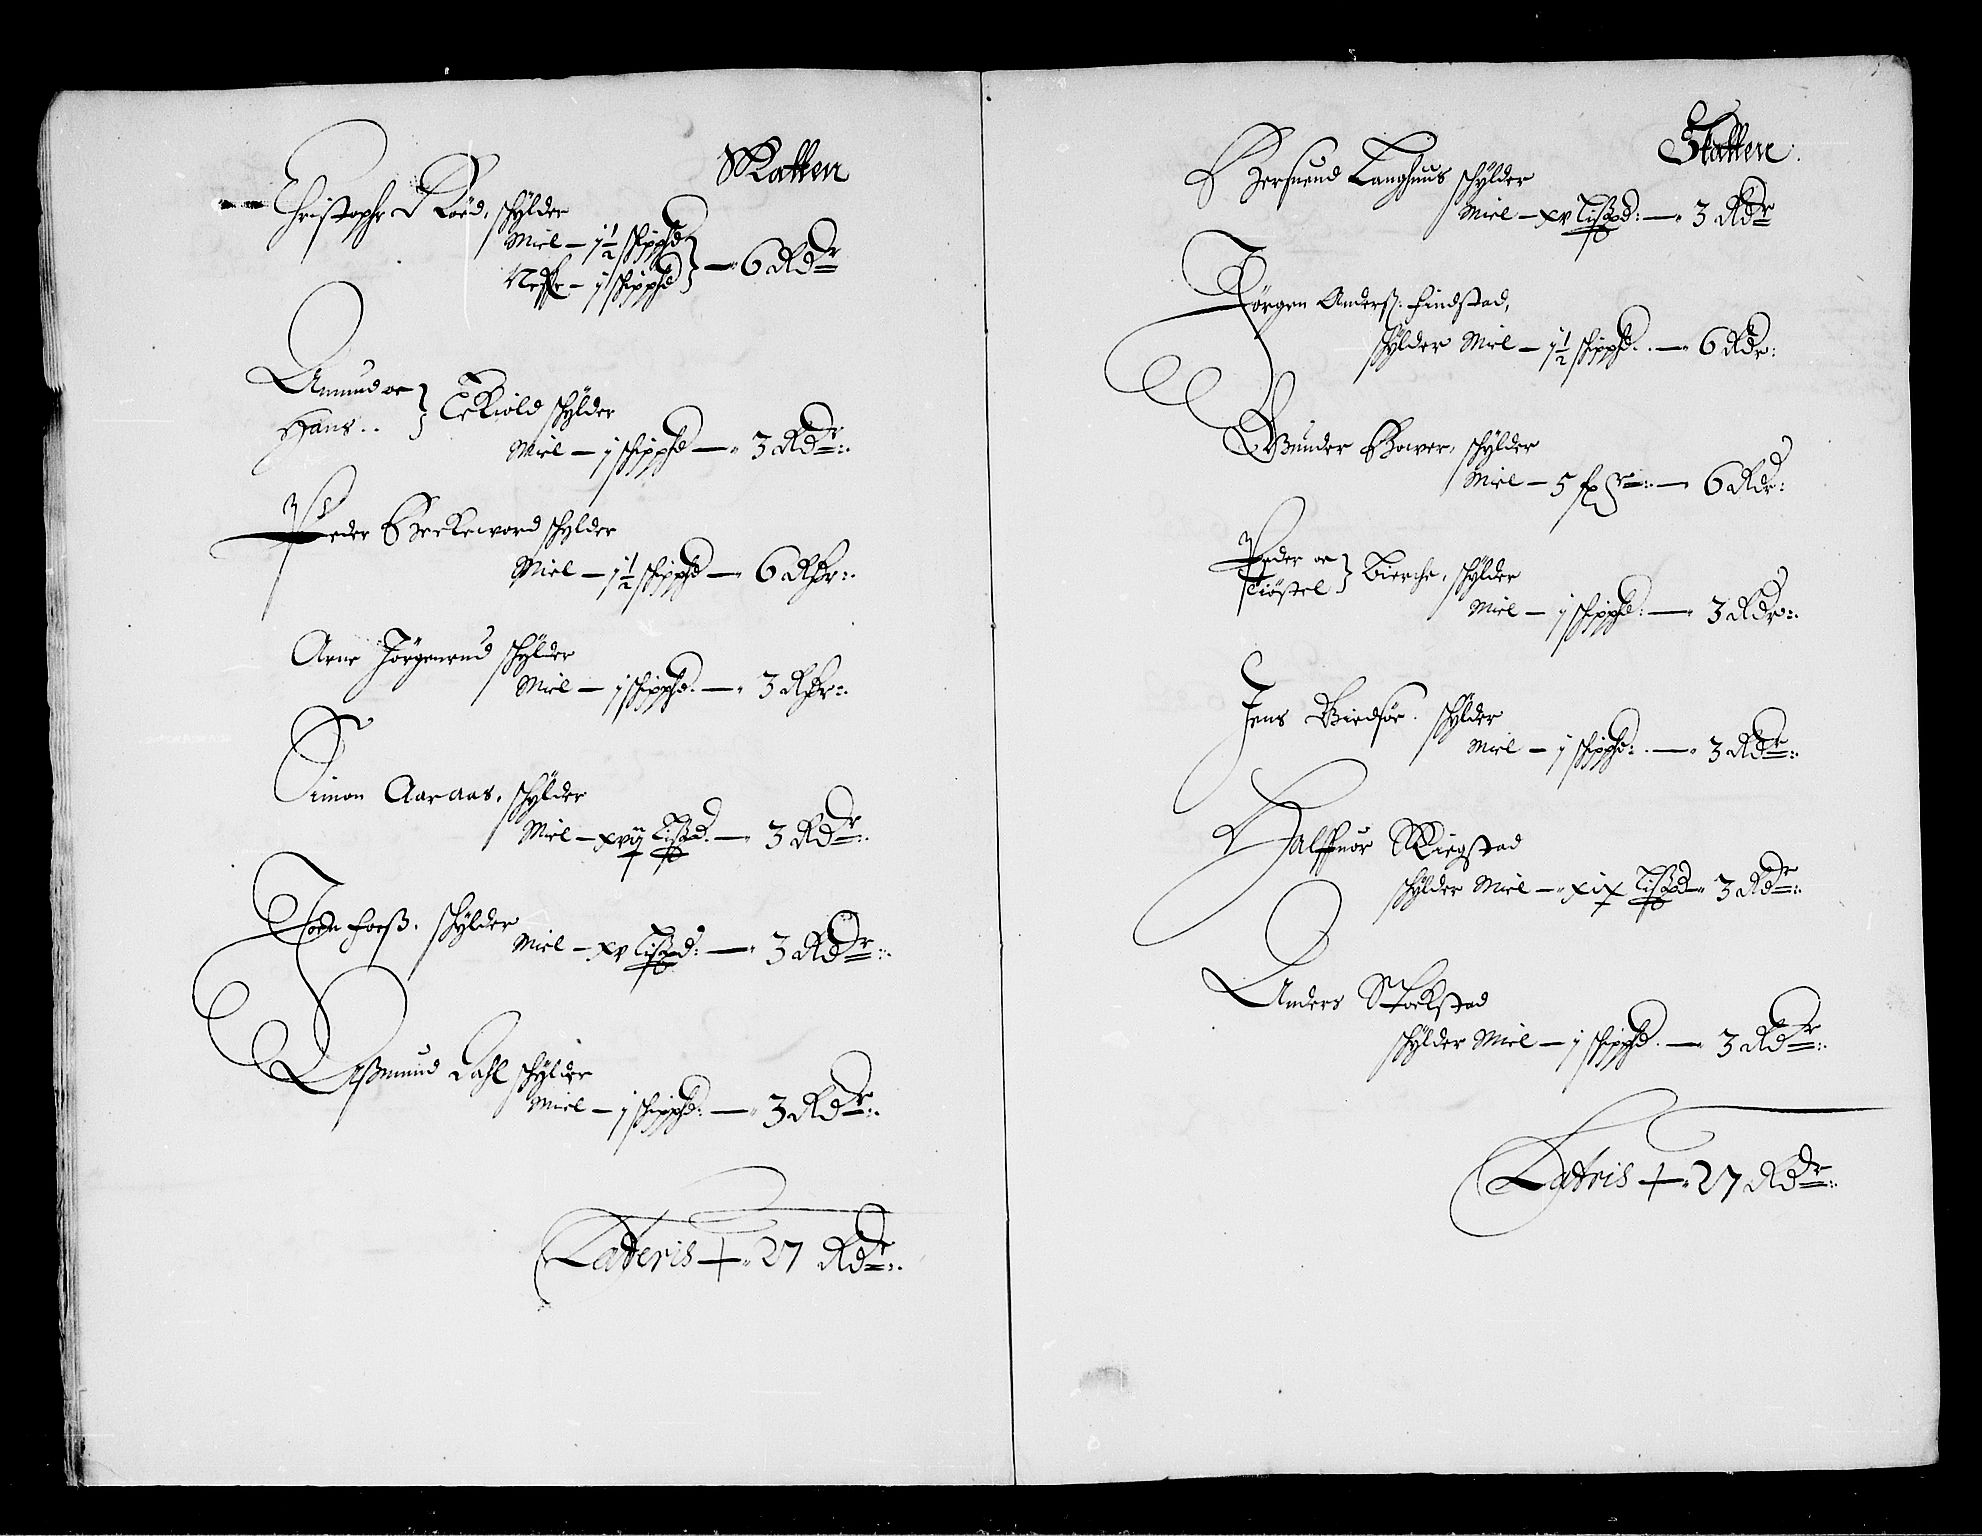 Skatten
Christopher Röed, schylder
Miel – 1½ schippd
Neffe – 1 schippd } – 6 Rdr
Amund oc
Hans .. } Eskiold schylder
Miel – 1 schippd – 3 Rdr:
Peder Berkeword schylder
Miel – 1½ schippd – 6 Rdr:
Arne Jörgenrud schylder
Miel – 1 schippd. – 3 Rdr:
Simon Aaraas, schylder
Miel – xvij Lispd. – 3 Rdr:
Joen Foess, schylder
Miel – xv Lispd: – 3 Rdr:
Assmund Dahl schylder
Miel – 1 schippd: – 3 Rdr:
Lateris + 27 Rdr:
Skatten
Langhuus schylder
Miel – xv Lispd: – 3 Rdr
Jörgen Anderss: Findstad,
schylder Miel – 1½ schippd. – 6 Rdr:
Gunder Bower, schylder
Miel – 5 – 6 Rdr:
Peder oc
Kiöstel } Bierche, schylder
Miel – 1 schippd: – 3 Rdr:
Jens Giedsöe. schylder
Miel – 1 schippd: – 3 Rdr:
Halffuor Skiegstad
schylder Miel – xix Lispd – 3 Rdr:
Anders Stockstad
schylder Miel – 1 schippd. – 3 Rdr:
Lateris + 27 Rdr: